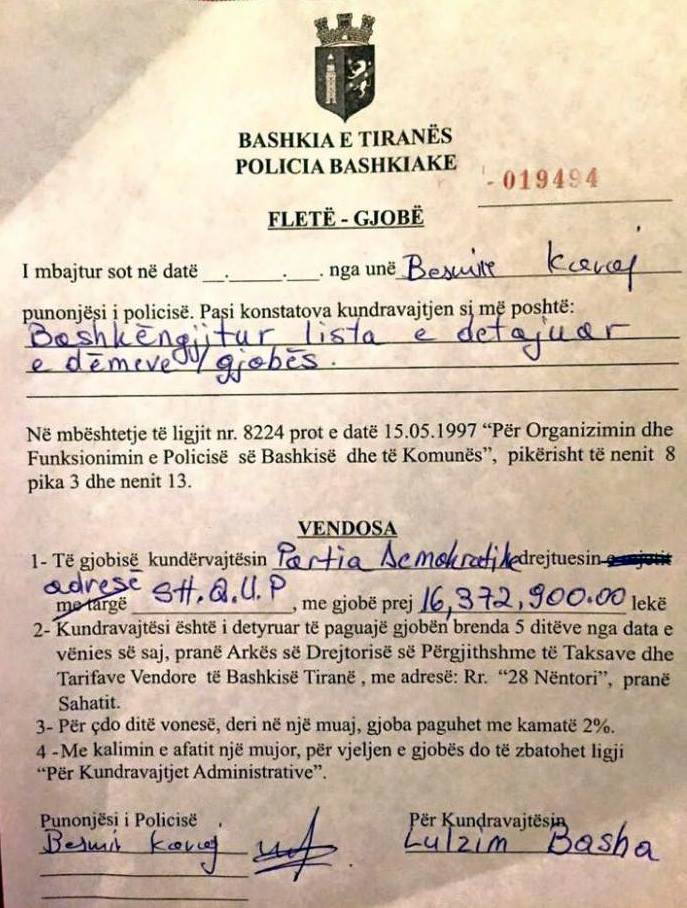 BASHKIA E TIRANËS
POLICIA BASHKIAKE
- 019494
FLETË - GJOBË
I mbajtur sot në datë __.______.___. nga unë Besmir Kavaj
punonjësi i policisë. Pasi konstatova kundravajtjen si më poshtë:
Bashkëngjitur lista e detajuar
e dëmeve/gjobës.
Në mbështetje të ligjit nr. 8224 prot e datë 15.05.1997 “Për Organizimin dhe
Funksionimin e Policisë së Bashkisë dhe të Komunës”, pikërisht të nenit 8
pika 3 dhe nenit 13.
VENDOSA
1- Të gjobisë kundërvajtësin Partia Demokratike drejtuesin
adresë
me targë SH.Q.U.P, me gjobë prej 16,372,900.00 lekë
2- Kundravajtësi është i detyruar të paguajë gjobën brenda 5 ditëve nga data e
vënies së saj, pranë Arkës së Drejtorisë së Përgjithshme të Taksave dhe
Tarifave Vendore të Bashkisë Tiranë , me adresë: Rr. “28 Nëntori”, pranë
Sahatit.
3- Për çdo ditë vonesë, deri në një muaj, gjoba paguhet me kamatë 2%.
4 -Me kalimin e afatit një mujor, për vjeljen e gjobës do të zbatohet ligji
“Për Kundravajtjet Administrative”.
Punonjësi i Policisë
Besmir Kavaj
Për Kundravajtësin
Lulzim Basha